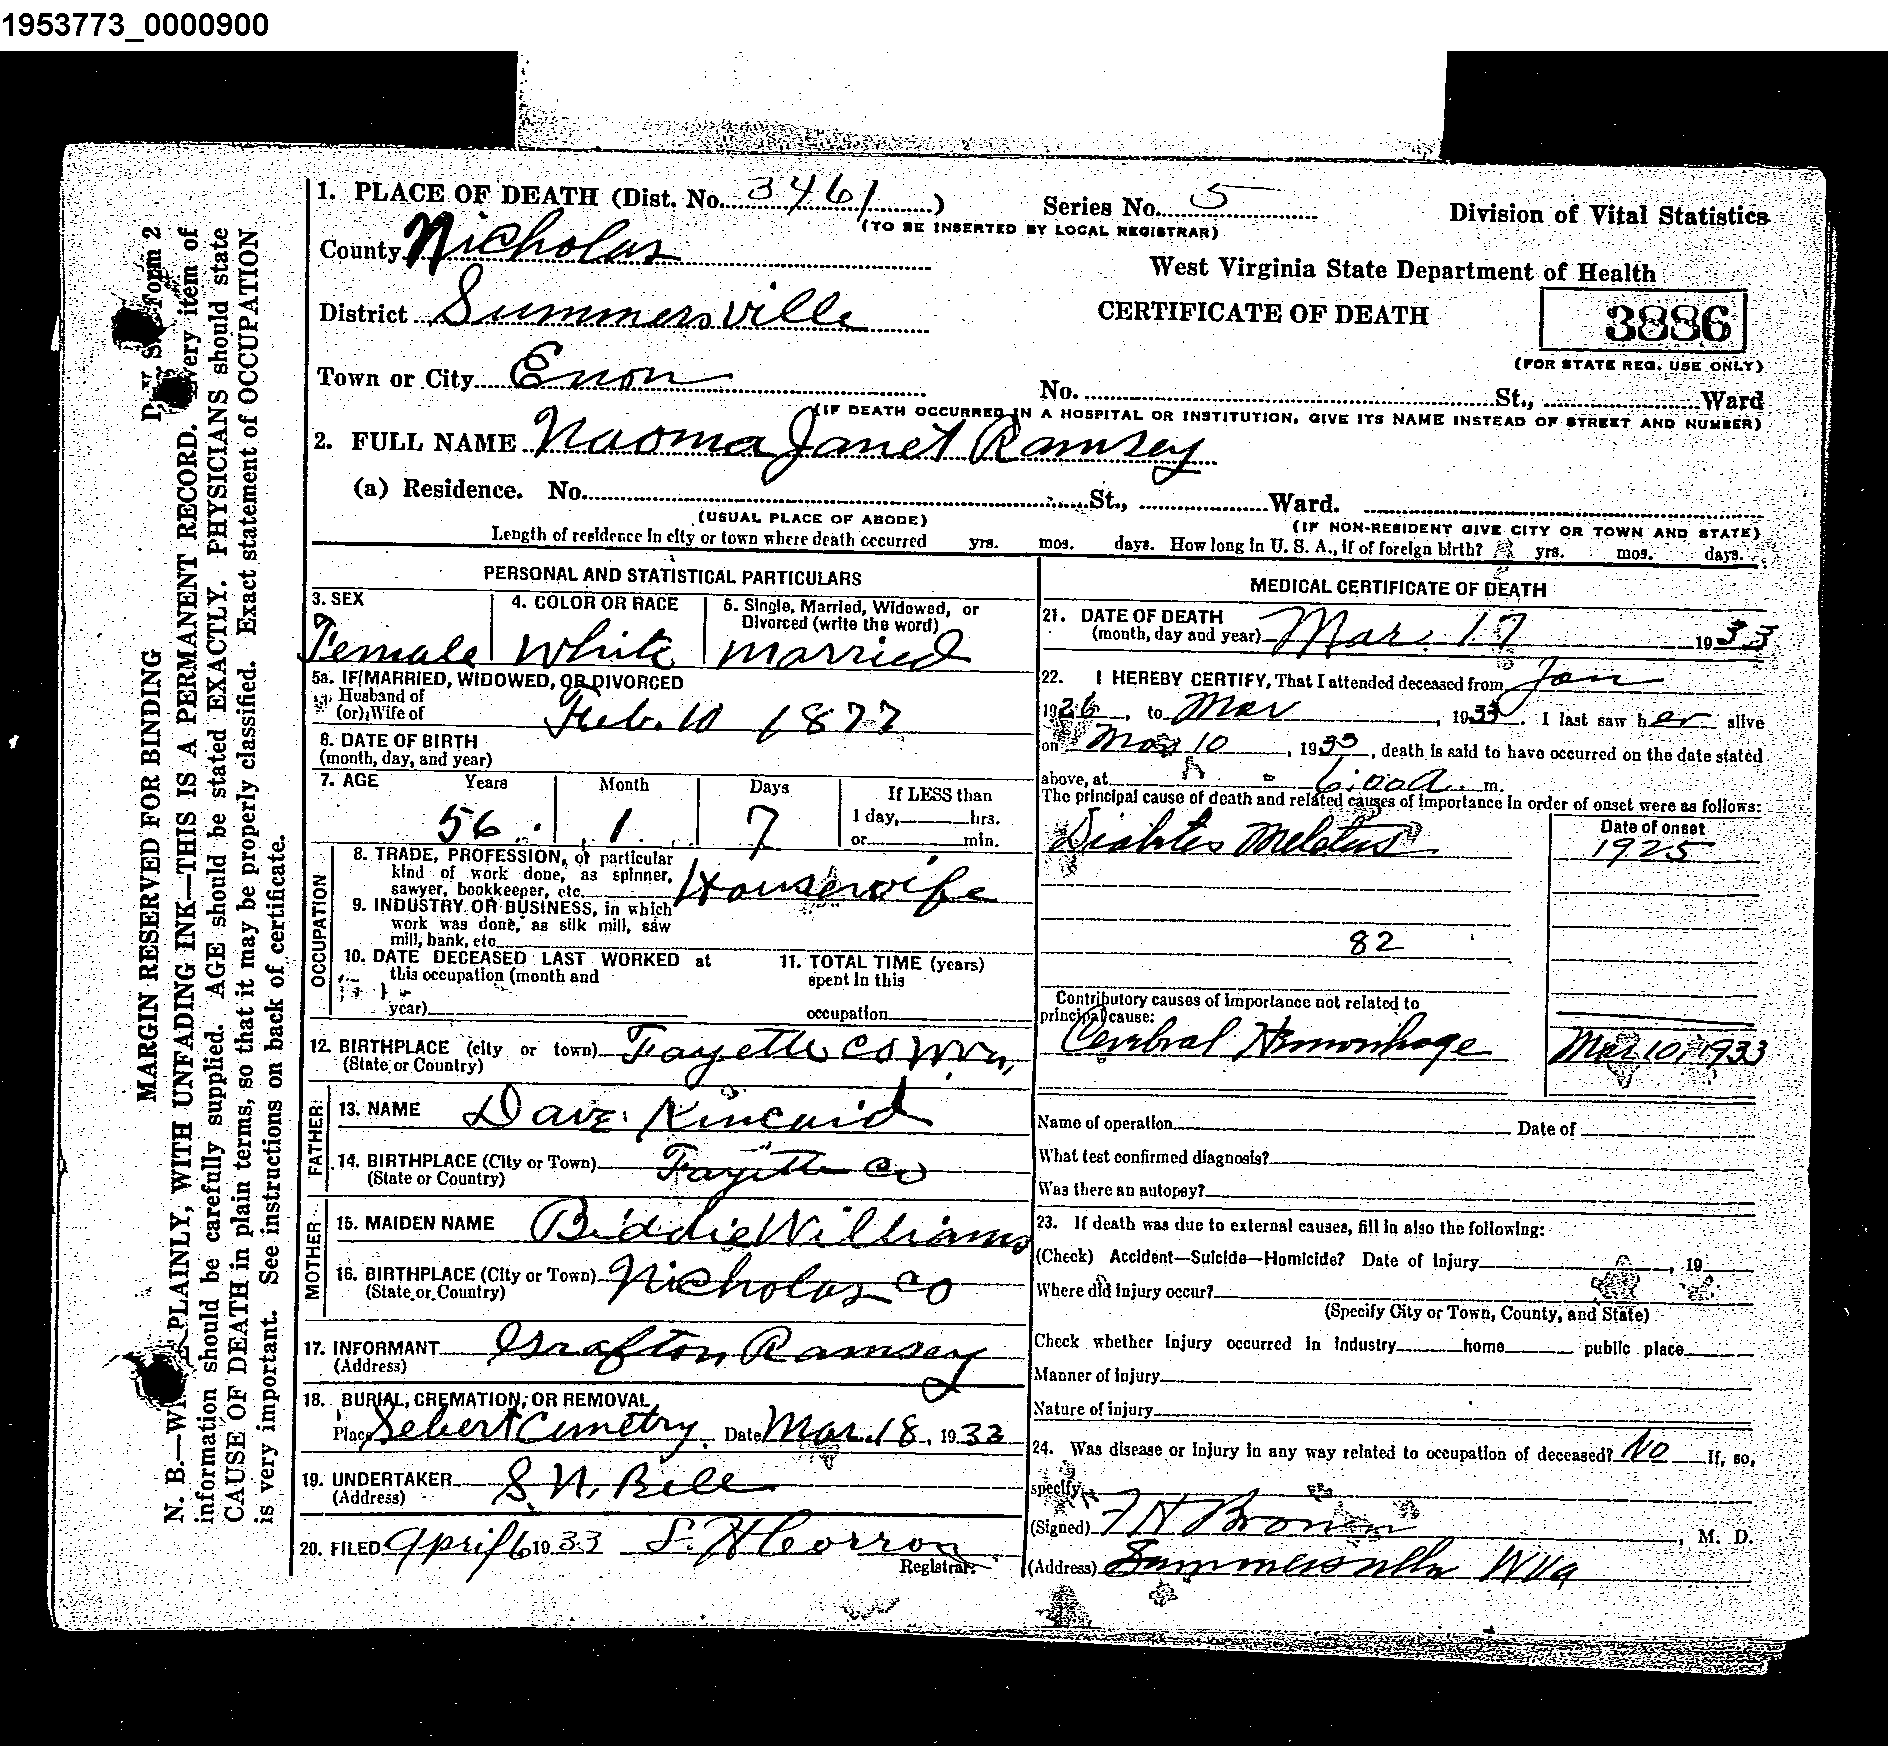 1953773_0000900
1. PLACE OF DEATH (Dist. No. 3461) Series No. 5 Division of Vital Statistics
(TO BE INSERTED BY LOCAL REGISTRAR)
County Nicholas
West Virginia State Department of Health
District Summersville CERTIFICATE OF DEATH 3886
(FOR STATE REG. USE ONLY)
Town or City Enon No. St., Ward
(IF DEATH OCCURRED IN A HOSPITAL OR INSTITUTION, GIVE ITS NAME INSTEAD OF STREET AND NUMBER)
2. FULL NAME Naoma Janet Ramsey
(a) Residence. No. St., Ward.
(USUAL PLACE OF ABODE) (IF NON-RESIDENT GIVE CITY OR TOWN AND STATE)
Length of residence in city or town where death occurred yrs. mos. days. How long in U. S. A., if of foreign birth? yrs. mos. days.
PERSONAL AND STATISTICAL PARTICULARS
3. SEX 4. COLOR OR RACE 5. Single, Married, Widowed, or
Divorced (write the word)
Female White Married
5a. IF MARRIED, WIDOWED, OR DIVORCED
Husband of
(or) Wife of
Feb. 10 1877
6. DATE OF BIRTH
(month, day, and year)
7. AGE Years Month Days If LESS than
1 day, hrs.
56 1 7 or min.
OCCUPATION
8. TRADE, PROFESSION, or particular
kind of work done, as spinner,
sawyer, bookkeeper, etc. Housewife
9. INDUSTRY OR BUSINESS, in which
work was done, as silk mill, saw
mill, bank, etc.
10. DATE DECEASED LAST WORKED at 11. TOTAL TIME (years)
this occupation (month and spent in this
year) occupation
12. BIRTHPLACE (city or town) Fayette Co W Va,
(State or Country)
FATHER
13. NAME Dave Kincaid
14. BIRTHPLACE (City or Town) Fayette Co
(State or Country)
MOTHER
15. MAIDEN NAME Biddie Williams
16. BIRTHPLACE (City or Town) Nicholas Co
(State or Country)
17. INFORMANT Grafton Ramsey
(Address)
18. BURIAL, CREMATION, OR REMOVAL
Place Sebert Cemetry. Date Mar. 18, 1933
19. UNDERTAKER S. N. Bell
(Address)
20. FILED April 6 1933
Registrar.
MEDICAL CERTIFICATE OF DEATH
21. DATE OF DEATH
(month, day and year) Mar. 17 1933
22. I HEREBY CERTIFY, That I attended deceased from Jan
1926, to Mar, 1933. I last saw her alive
on Mar 10, 1933, death is said to have occurred on the date stated
above, at 6:00 a. m.
The principal cause of death and related causes of importance in order of onset were as follows:
Date of onset
Diabtes Melatus 1925
82
Contributory causes of importance not related to
principal cause:
Cerebral Hemorrhage Mar 10, 1933
Name of operation Date of
What test confirmed diagnosis?
Was there an autopsy?
23. If death was due to external causes, fill in also the following:
(Check) Accident—Suicide—Homicide? Date of injury , 19
Where did injury occur?
(Specify City or Town, County, and State)
Check whether injury occurred in industry home public place
Manner of injury
Nature of injury
24. Was disease or injury in any way related to occupation of deceased? No If, so,
specify
(Signed) F H Brown, M. D.
(Address) Summersville W Va
Form 2
MARGIN RESERVED FOR BINDING
N. B.—WRITE PLAINLY, WITH UNFADING INK—THIS IS A PERMANENT RECORD. Every item of
information should be carefully supplied. AGE should be stated EXACTLY. PHYSICIANS should state
CAUSE OF DEATH in plain terms, so that it may be properly classified. Exact statement of OCCUPATION
is very important. See instructions on back of certificate.